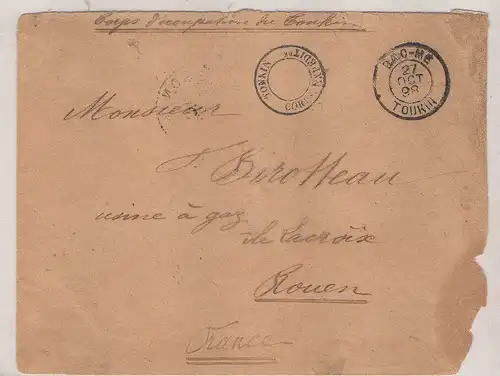 Corps d'occupation du Tonkin
TONKIN CORRESP
BAC-MÉ
27
OCT
98
TONKIN
Monsieur
Birotteau
usine à gaz
île Lacroix
Rouen
France